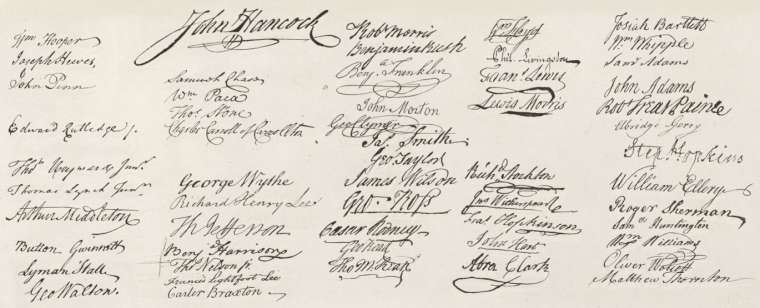 John Hancock
Wm Hooper
Joseph Hewes,
John Penn
Edward Rutledge /.
Thos Heyward Junr.
Thomas Lynch Junr.
Arthur Middleton
Button Gwinnett
Lyman Hall
Geo Walton.
Samuel Chase
Wm Paca
Thos Stone
Charles Carroll of Carrollton
George Wythe
Richard Henry Lee
Th Jefferson
Benj Harrison
Thos Nelson jr.
Francis Lightfoot Lee
Carter Braxton
Robt Morris
Benjamin Rush
Benj. Franklin
John Morton
Geo Clymer
Jas. Smith
Geo. Taylor
James Wilson
Geo. Ross
Caesar Rodney
Geo Read
Tho M:Kean
Wm Floyd
Phil. Livingston
Frans. Lewis
Lewis Morris
Richd. Stockton
Jno Witherspoon
Fras. Hopkinson
John Hart
Abra Clark
Josiah Bartlett
Wm Whipple
Saml Adams
John Adams
Robt Treat Paine
Elbridge Gerry
Step. Hopkins
William Ellery
Roger Sherman
Saml Huntington
Wm Williams
Oliver Wolcott
Matthew Thornton